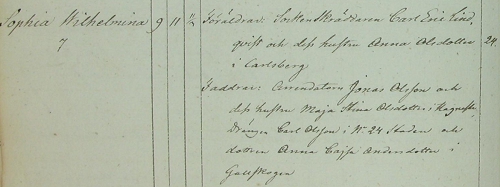 Sophia Wilhelmina 9 11 1/2 Föräldrar: SockenSkräddaren Carl Eric Lind
7 qvist och dess hustru Anna Olsdotter 24.
i Carlsberg
Faddrar: Arrendatorn Jonas Olsson och
dess hustru Maja Stina Olsdotter i
Drängen Carl Olsson i N° 24 Staden och
dottern Anna Cajsa Andersdotter i